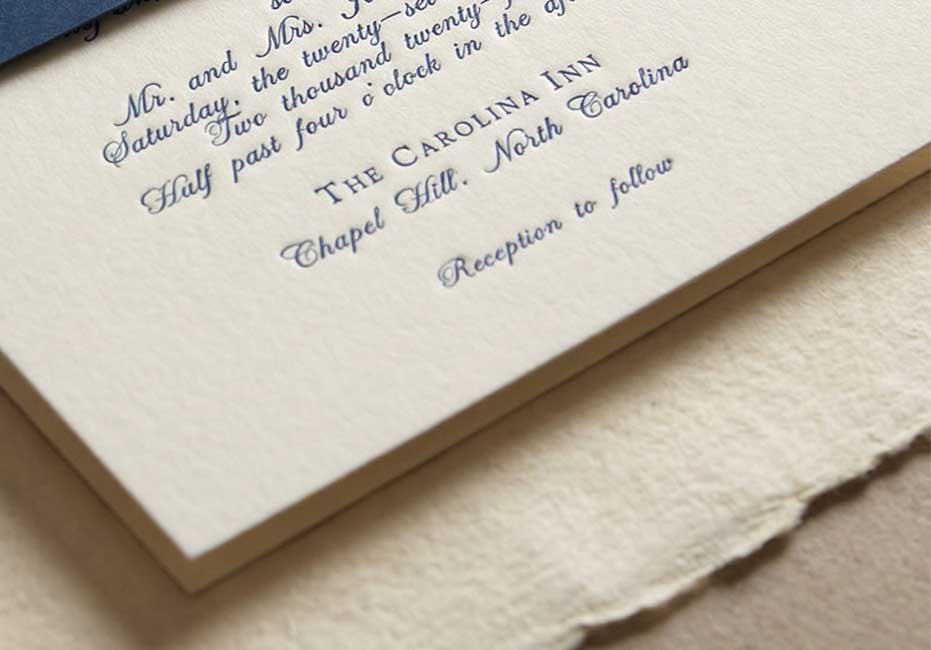 Mr. and Mrs.
Saturday, the
Two thousand
Half past four o'clock in the
THE CAROLINA INN
Chapel Hill. North Carolina
Reception to follow